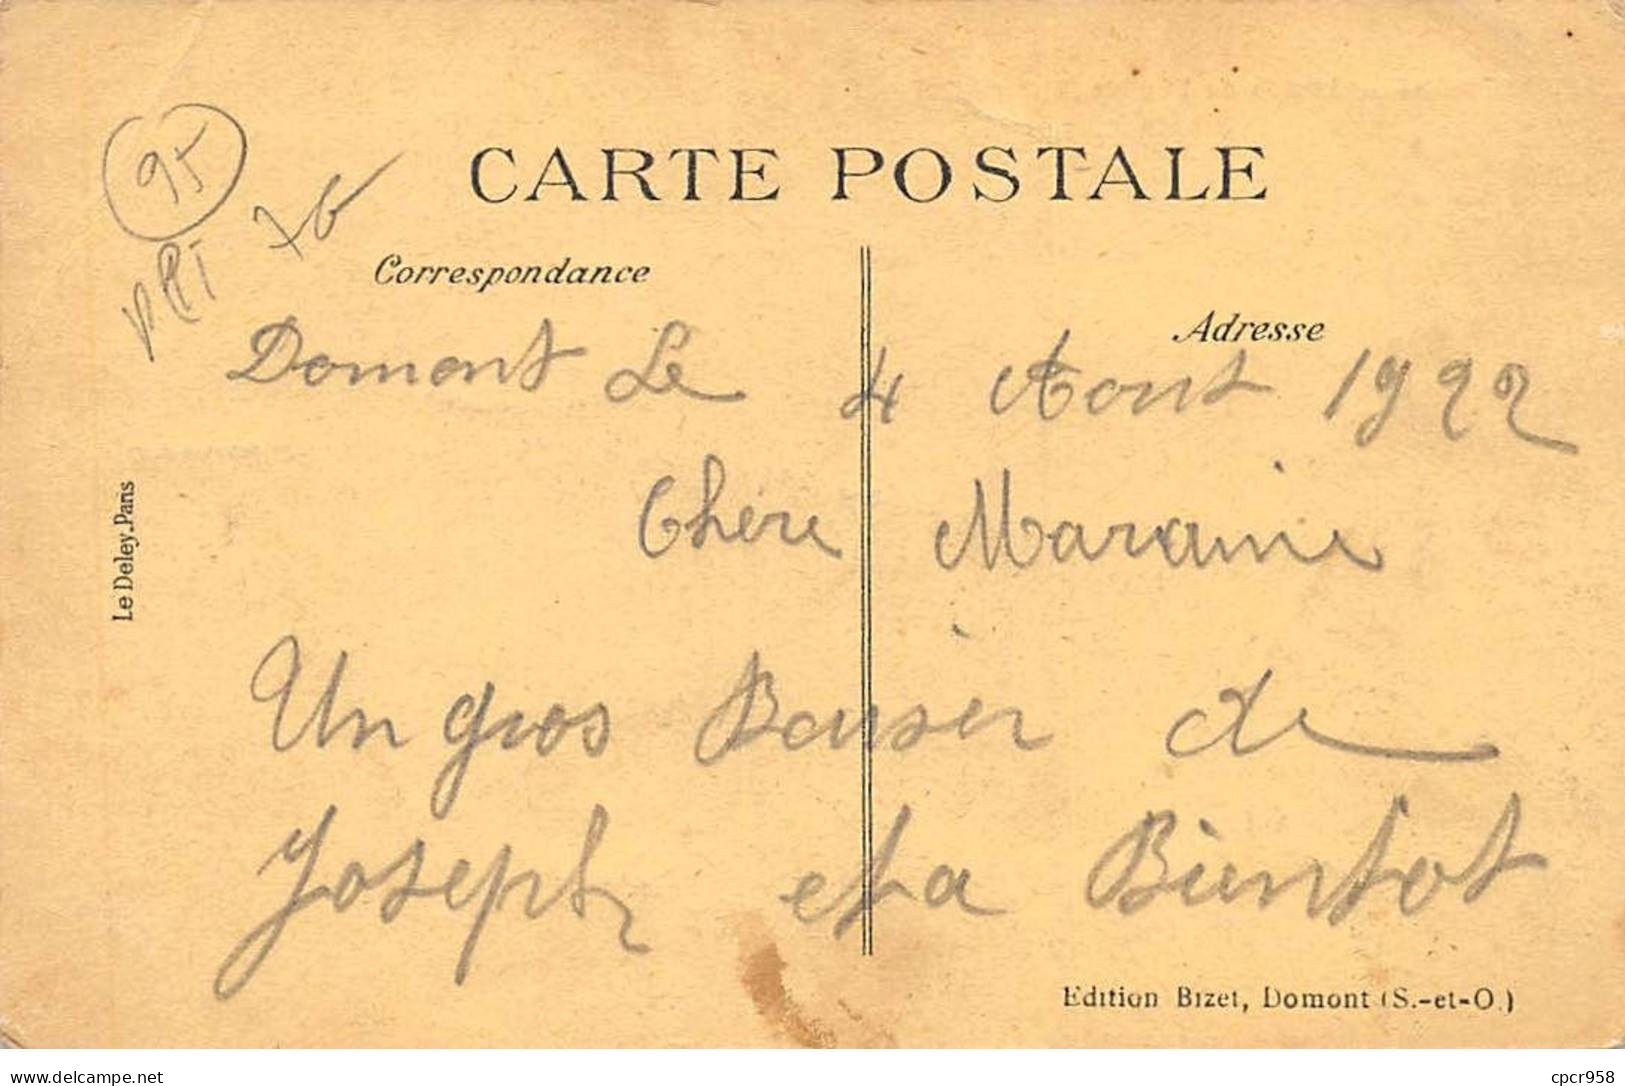 95
76
CARTE POSTALE
Correspondance
Adresse
Domont Le 4 Aout 1922
Chere Maraine
Un gros Baiser de
Joseph et a Bientot
Le Deley.Paris
Edition Bizet, Domont (S.-et-O.)
www.delcampe.net
cpcr958